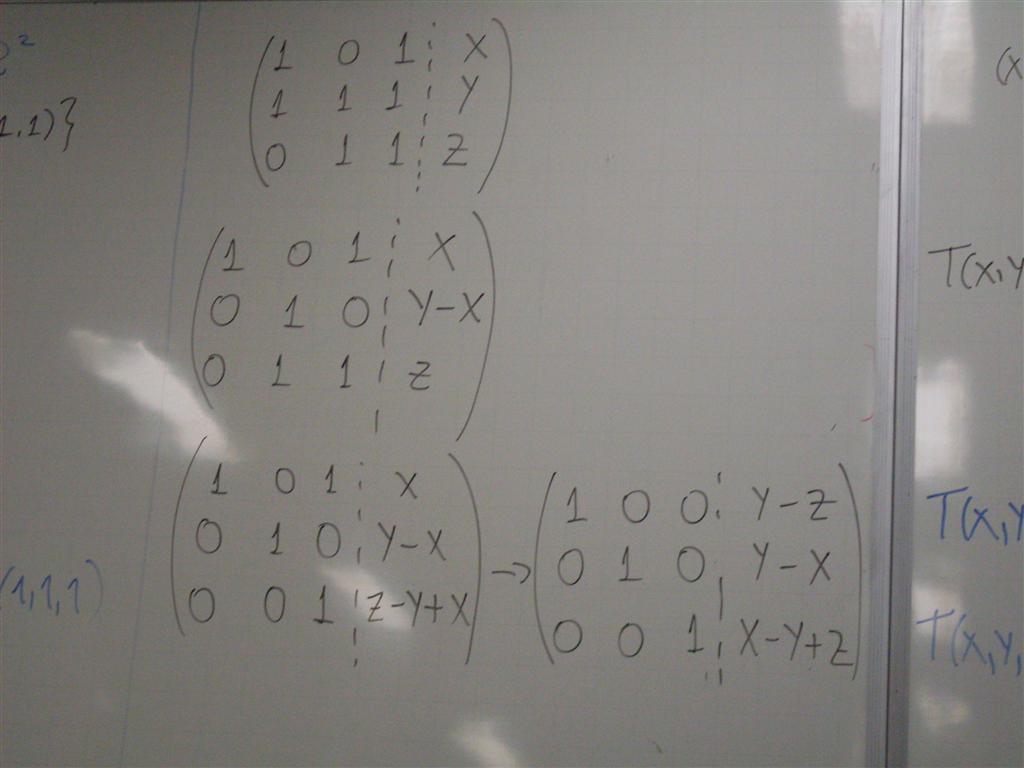 ℝ²
1,1)}
(1 0 1 ¦ X)
(1 1 1 ¦ Y)
(0 1 1 ¦ Z)
(1 0 1 ¦ X)
(0 1 0 ¦ Y-X)
(0 1 1 ¦ Z)
(1 0 1 ¦ X)
(0 1 0 ¦ Y-X)
(0 0 1 ¦ Z-Y+X)
→
(1 0 0 ¦ Y-Z)
(0 1 0 ¦ Y-X)
(0 0 1 ¦ X-Y+Z)
(1,1,1)
(x
T(x,y
T(x,y
T(x,y,